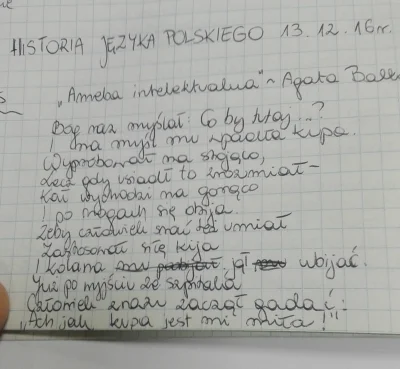 HISTORIA JĘZYKA POLSKIEGO 13.12.16r.
"Ameba intelektualna" ~ Agata
Bóg raz myślał: Co by tutaj...?
I na myśl mu wpadła kupa.
Wypróbował na stojąco,
Lecz gdy usiadł to zrozumiał -
Kał wychodzi na gorąco
I po nogach się obija.
Żeby człowiek srać też umiał
Zastosował się kija
I kolana jął wbijać.
Już po wyjściu ze szpitala
Człowiek znów zaczął gadać:
"Ach jak kupa jest mi miła!"